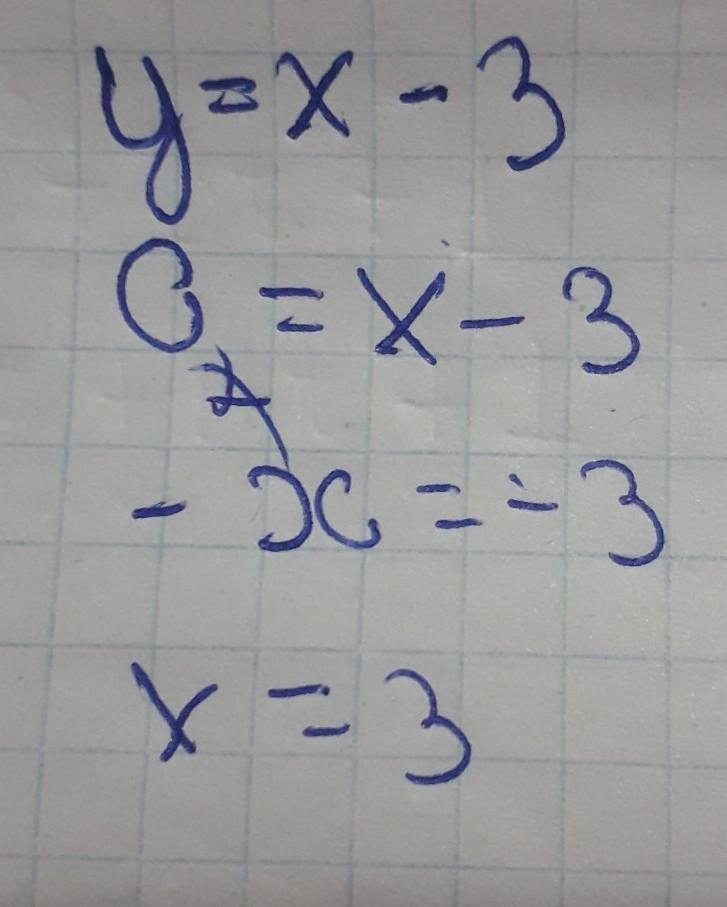 y = x - 3
0 = x - 3
- x = - 3
x = 3